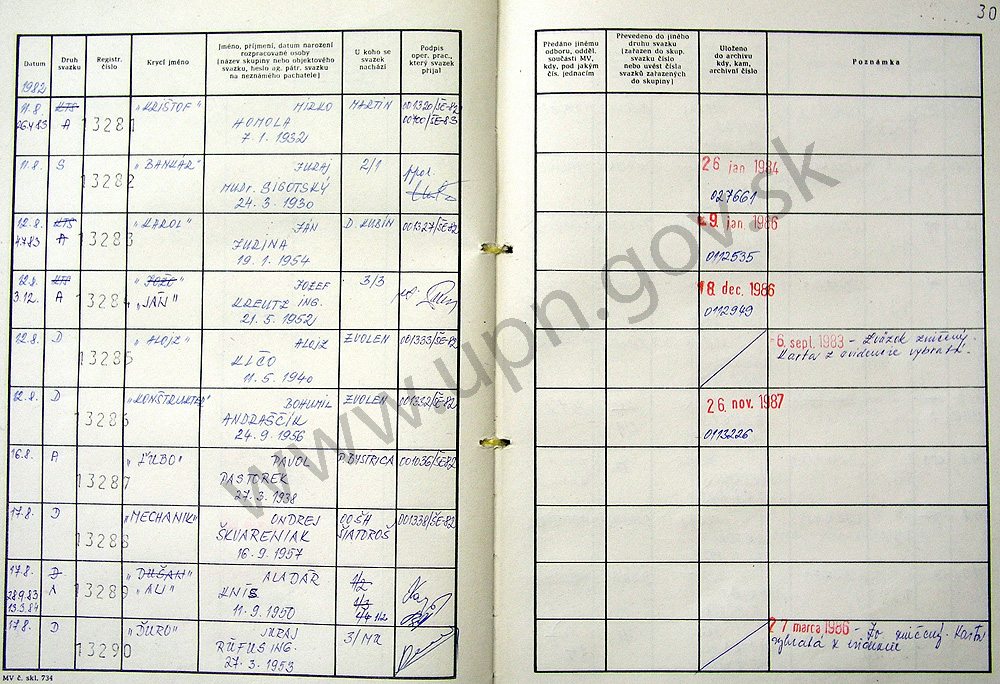 30
Datum
Druh svazku
Registr. číslo
Krycí jméno
Jméno, příjmení, datum narození rozpracované osoby (název skupiny nebo objektového svazku, heslo ag. pátr. svazku na neznámého pachatele)
U koho se svazek nachází
Podpis oper. prac., který svazek přijal
Předáno jinému odboru, odděl. součásti MV, kdy, pod jakým čís. jednacím
Převedeno do jiného druhu svazku (zařazen do skup. svazku číslo nebo uvést čísla svazků zařazených do skupiny)
Uloženo do archivu kdy, kam, archivní číslo
Poznámka
1982
11.8. KTS 13281 "KRIŠTOF" MIRKO MARTIN 001320/ŠE-82
26.4.83 A HOMOLA 00400/ŠE-83
7. 1. 1932
11.8. S 13282 "BANKAR" JURAJ 2/1 ppor. 26 jan. 1984
MUDr. BIGOTSKÝ
24. 3. 1930 027661
12.8. KTS 13283 "KAROL" JÁN D. KUBÍN 001327/ŠE-82 -9. jan. 1986
4.7.83 A JURINA
19. 1. 1954 0112535
12.8. KTS 13284 "JOŽO" JOZEF 3/3 18 dec. 1986
3.12. A "JÁN" KREUTZ ING.
21. 5. 1952 0112949
12.8. D 13285 "ALOJZ" ALOJZ ZVOLEN 001333/ŠE-82 -6. sept. 1983 - Zväzok zničený
KLČO Karta z evidencie vybratá.
11. 5. 1940
12.8. D 13286 "KONŠTRUKTÉR" BOHUMIL ZVOLEN 001332/ŠE-82 26. nov. 1987
ANDRAŠČÍK
24. 9. 1956 0113226
16.8. A 13287 "ĽUBO" PAVOL P. BYSTRICA 001036/ŠE-82
PASTOREK
27. 3. 1938
17.8. D 13288 "MECHANIK" ONDREJ OO ŠH 001338/ŠE-82
ŠKVARENIAK ŠIATOROŠ
16. 9. 1957
17.8. D 13289 "DUŠAN" ALADÁR 1/2
28.9.83 A "ALI" KNÍŠ 1/3
13.3.84 11. 9. 1950 4/4
17.8. D 13290 "ĎURO" JURAJ 3/MK 27 marca 1986 - Zv. zničený. Karta
RÚFUS ING. vybratá z evidencie
27. 3. 1953
MV č. skl. 734
www.upn.gov.sk